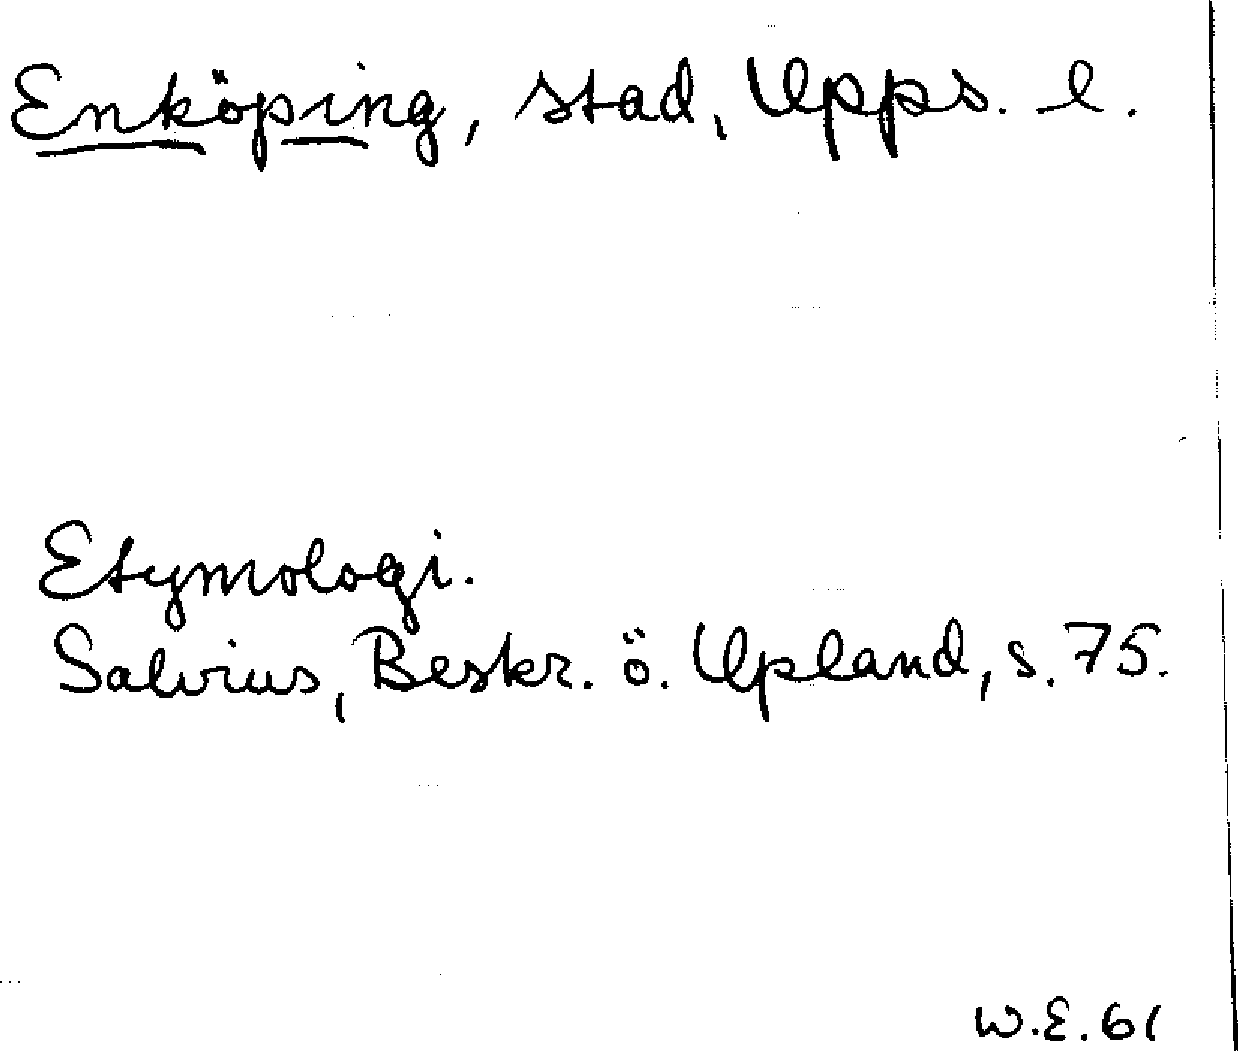 Enköping, stad, Upps. l.
Etymologi.
Salvius, Beskr. ö. Upland, s. 75.
W.E. 61